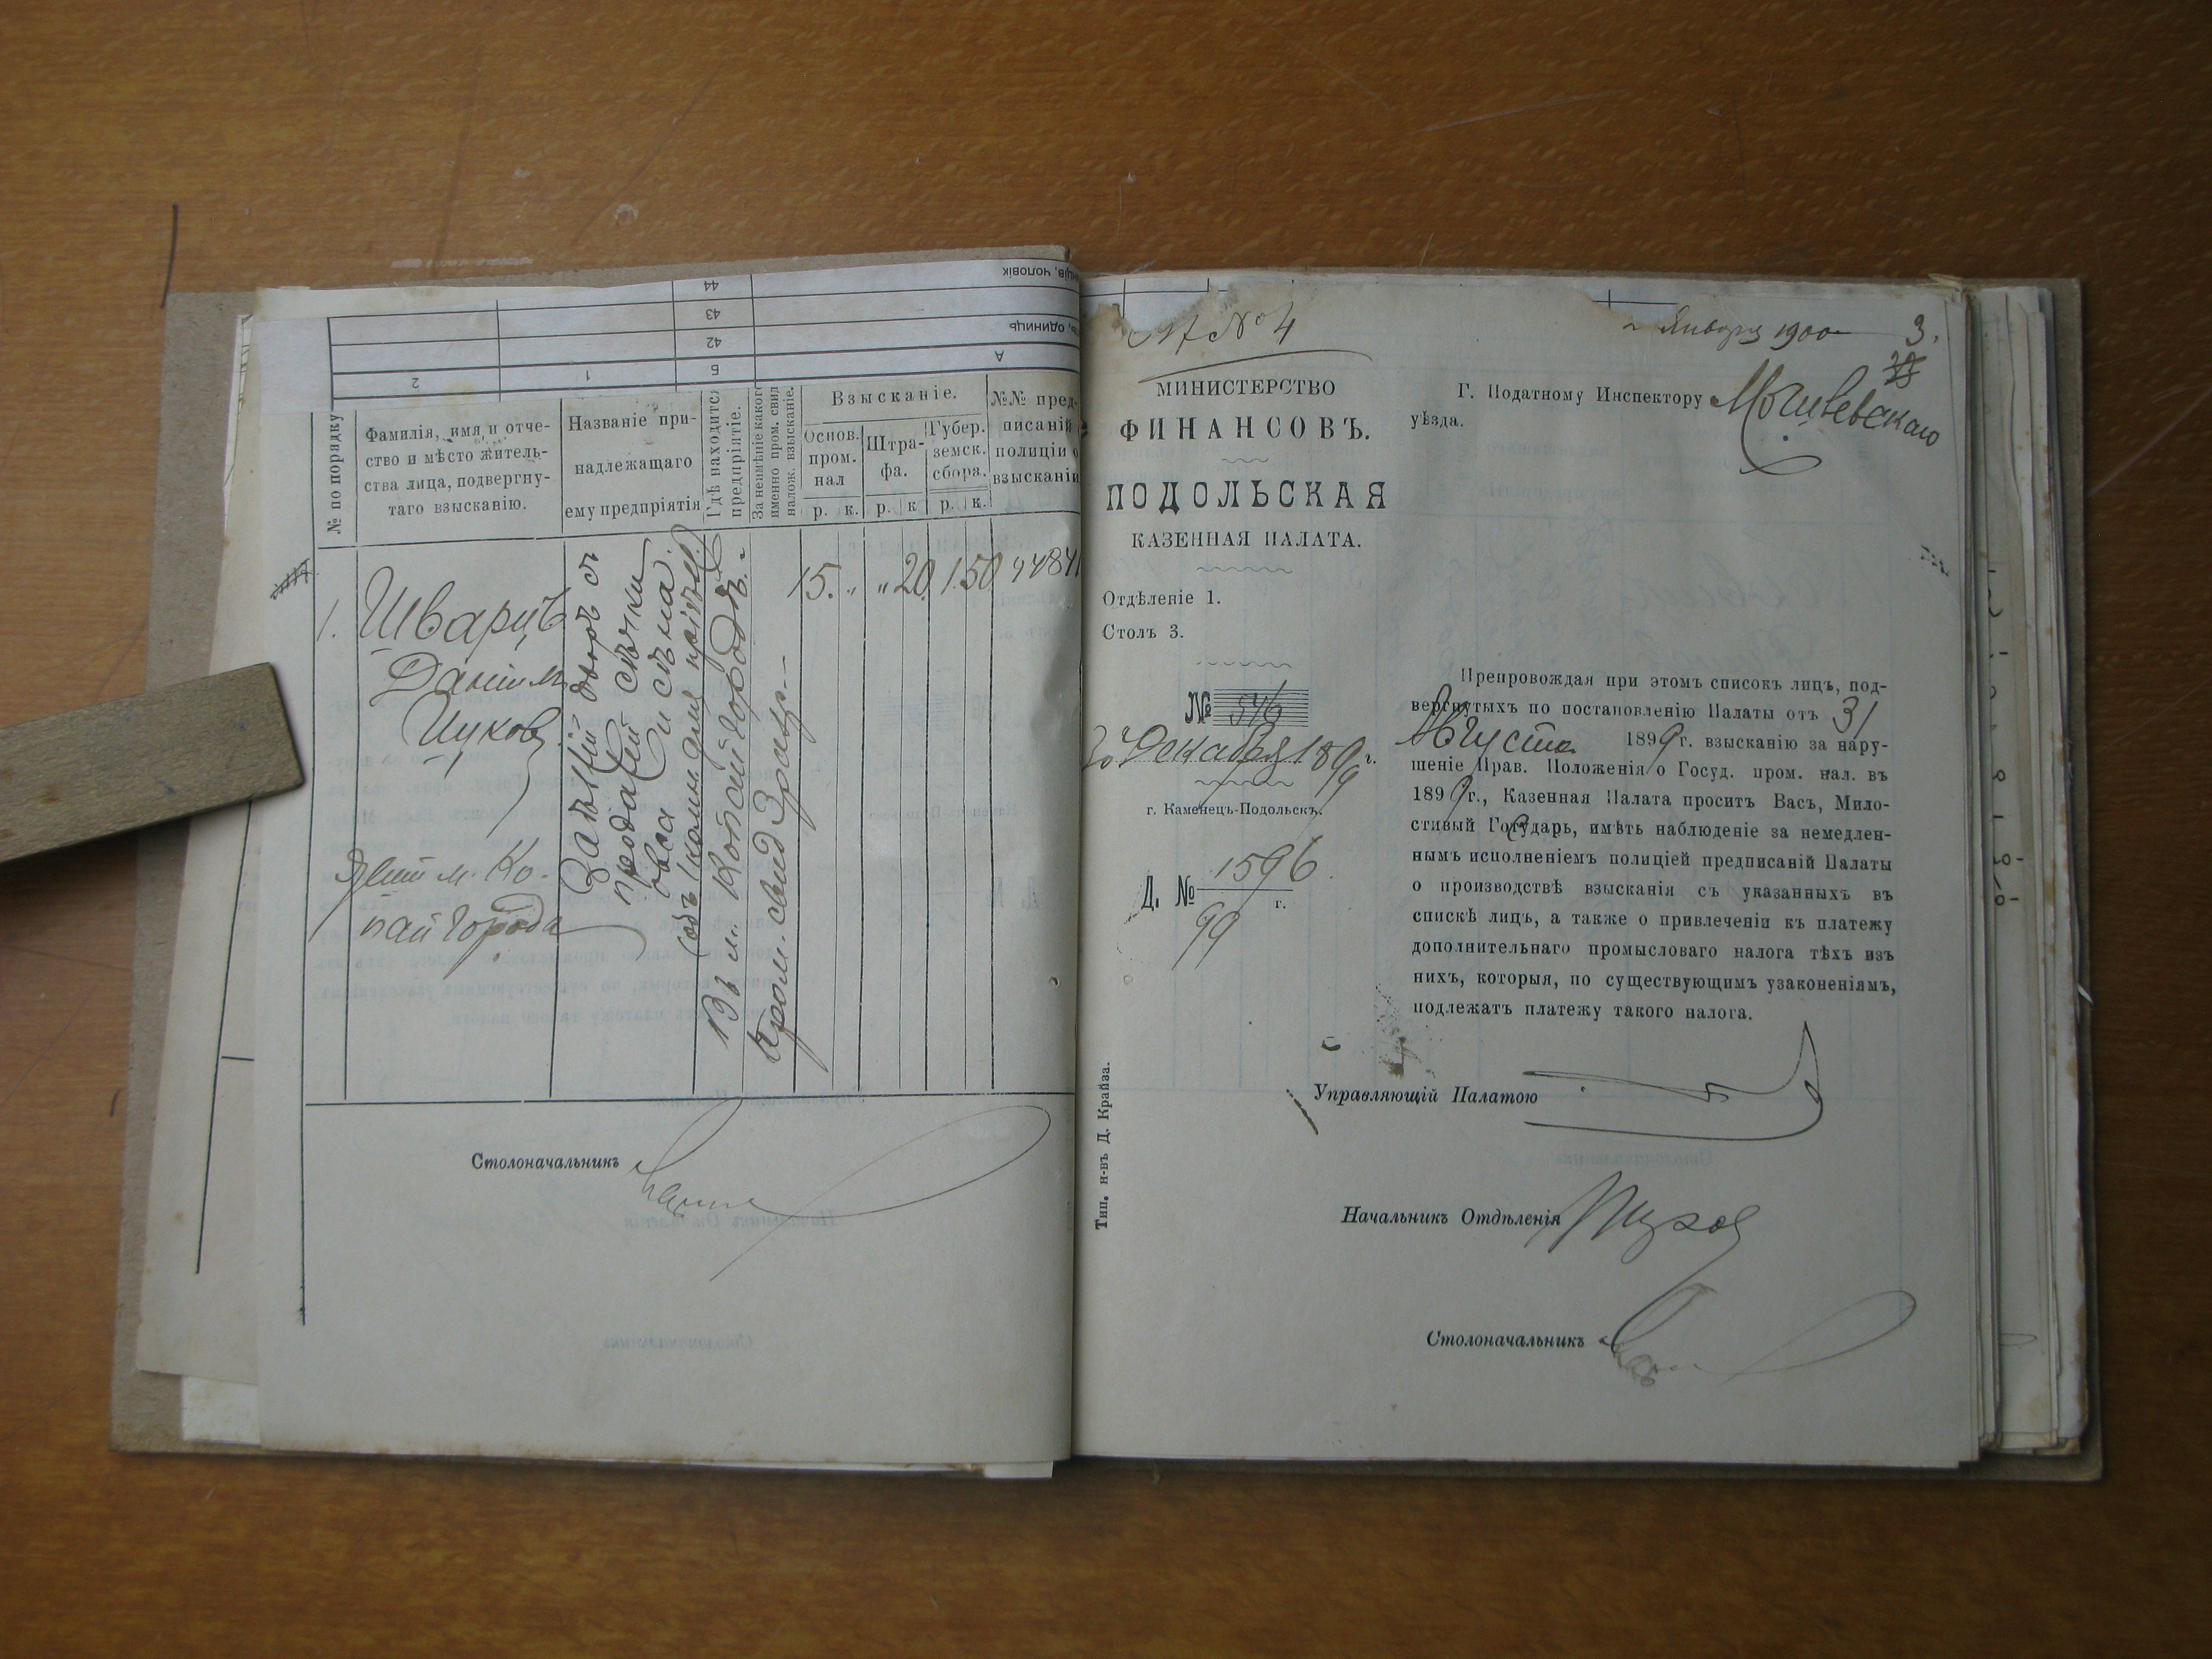 44
43
42
Б
А
2
1
№ по порядку
Фамилія, имя и отче-
ство и мѣсто житель-
ства лица, подвергну-
таго взысканію.
Названіе при-
надлежащаго
ему предпріятія
Гдѣ находится
предпріятіе.
За неимѣніе какого
именно пром. свид.
налож. взысканіе.
Взысканіе.
Основ.
пром.
нал
Штра-
фа.
Губер.
земск.
сбора.
р. к.
р. к
р. к.
№№ пред-
писаній
полиціи о
взысканіи
1. Шварцъ
Даніил
Ицков
Жит м. Ко-
пайгорода
Заѣзжій дворъ съ
продажей сѣчки
овса и сѣна
Въ м. Копайгородѣ.
Пром. свид 3 разр.
15. " " 20 1.50
Столоначальникъ
№ 4
Января 1900
3.
МИНИСТЕРСТВО
ФИНАНСОВЪ.
ПОДОЛЬСКАЯ
КАЗЕННАЯ ПАЛАТА.
Отдѣленіе 1.
Столъ 3.
№ 546
30 Декабря 1899 г.
г. Каменецъ-Подольскъ.
Д. № 1596
99 г.
Тип. н-въ Д. Крайза.
Г. Податному Инспектору Могилевскаго
уѣзда.
Препровождая при этомъ списокъ лицъ, под-
вергнутыхъ по постановленію Палаты отъ 31
Августа 1899 г. взысканію за нару-
шеніе Прав. Положенія о Госуд. пром. нал. въ
1899 г., Казенная Палата проситъ Васъ, Мило-
стивый Государь, имѣть наблюденіе за немедлен-
нымъ исполненіемъ полиціей предписаній Палаты
о производствѣ взысканія съ указанныхъ въ
спискѣ лицъ, а также о привлеченіи къ платежу
дополнительнаго промысловаго налога тѣхъ изъ
нихъ, которыя, по существующимъ узаконеніямъ,
подлежатъ платежу такого налога.
Управляющій Палатою
Начальникъ Отдѣленія
Столоначальникъ